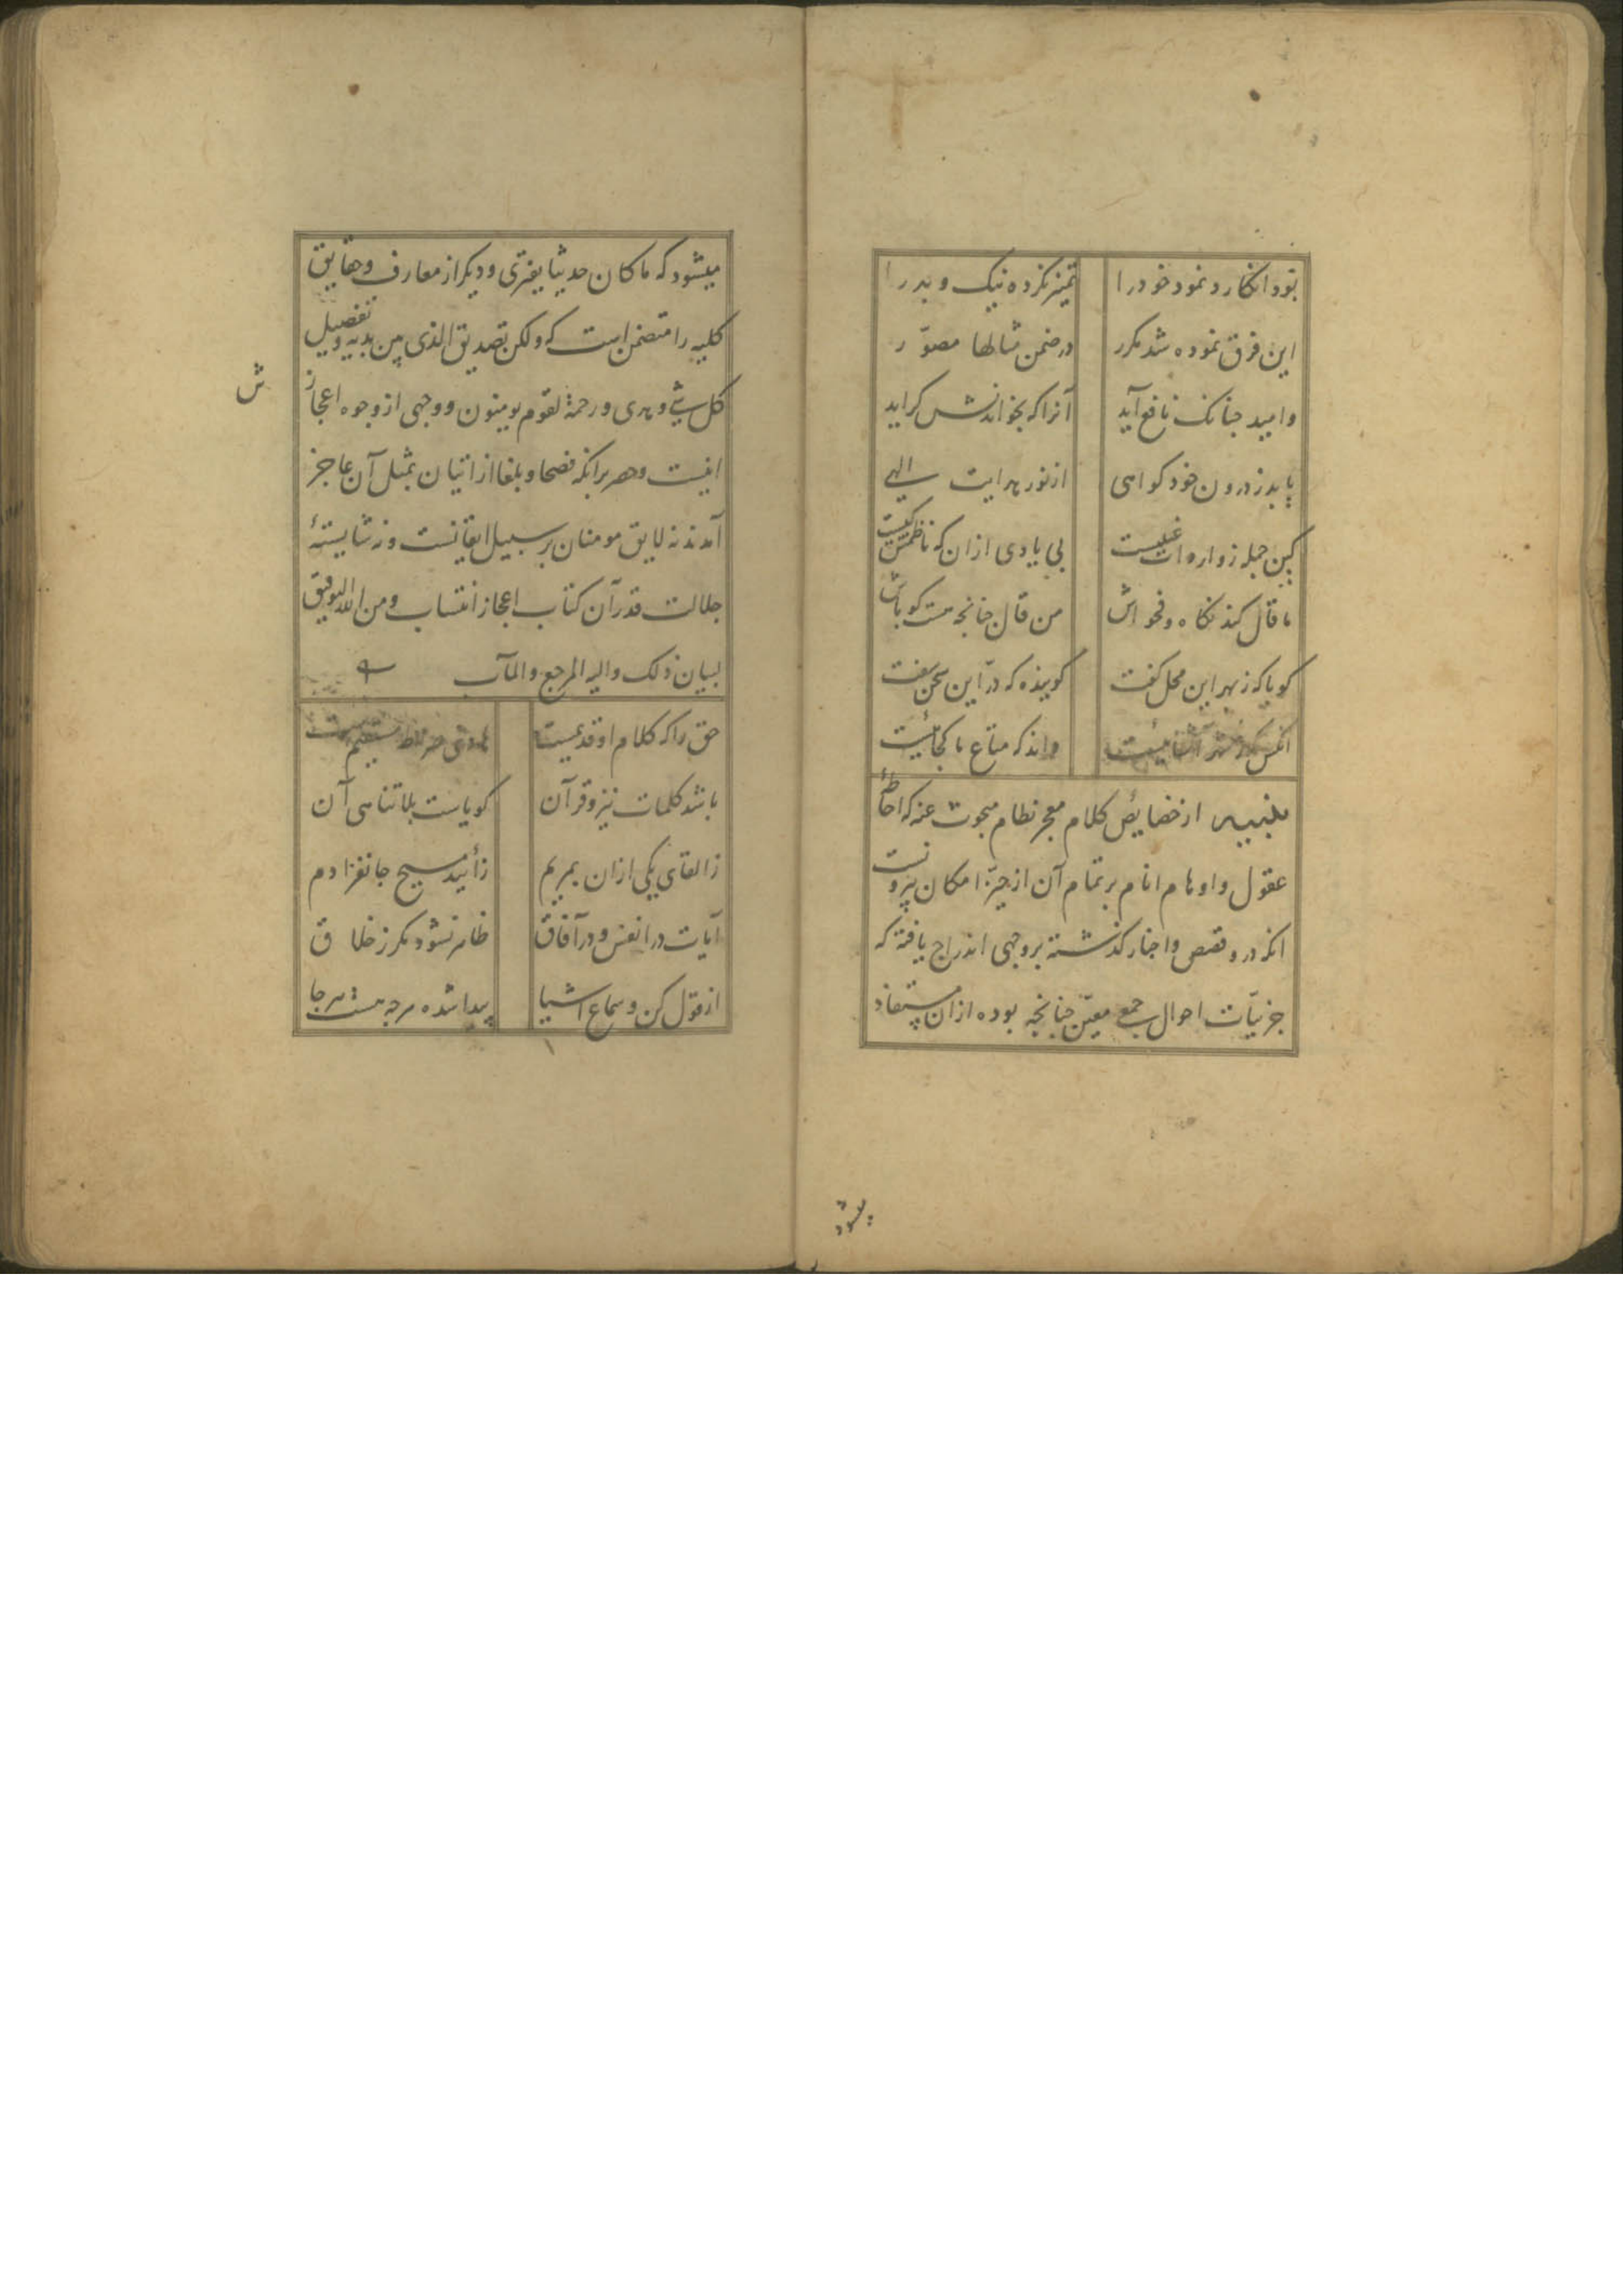 بود انکار و نمود خود را تمیز نکرده نیک و بد را
این فرق نموده شد مکرر در ضمن مثالها مصوّر
وامید چنانک نافع آید آنرا که بخواندنش کراید
یابد ز درون خود کواهی از نور هدایت الهی
کین جمله ز واردات غیبیست بی یادی ازان که ناظمش کیست
با قال کند نکاه و فحواش من قال چنانچه هست کو باش
کویا که ز بهر این محل کفت کوینده که درّ این سخن سفت
انکس که بشهر آشناییست داند که متاع ما کجاییست
تنبیه از خصایص کلام معجز نظام مبحوث عنه که احاطهٔ
عقول و اوهام انام بر تمام آن از حیّز امکان بیرونست
انکه درو قصص و اخبار کذشته بر وجهی اندراج یافته که
جزئیّات احوال جمع معیّن چنانچه بوده ازان مستفاد
میشود
میشود که ما کان حدیثا یفتری و دیکر از معارف و حقایق
کلیه را متضمن است که ولکن تصدیق الذی بین یدیه و تفصیل
کل شئ و هدی و رحمة لقوم یومنون و وجهی از وجوه اعجاز
ش
اینست و حصر برانکه فصحا و بلغا از اتیان بمثل آن عاجز
آمدند نه لایق مومنان بر سبیل ایقانست و نه شایستهٔ
جلالت قدر آن کتاب اعجاز انتساب و من الله التوفیق
لبیان ذلک و الیه المرجع و المآب
حق را که کلام او قدیمیست هادی صراط مستقیمیست
باشد کلمات نیز و قرآن کویاست بلا تناهی آن
ز القای یکی ازان بمریم زأیید مسیح جانفزا دم
آیات در انفس و در آفاق ظاهر نشود مکر ز خلاق
از قول کن و سماع اشیا پیدا شده هر چه هست هر جا